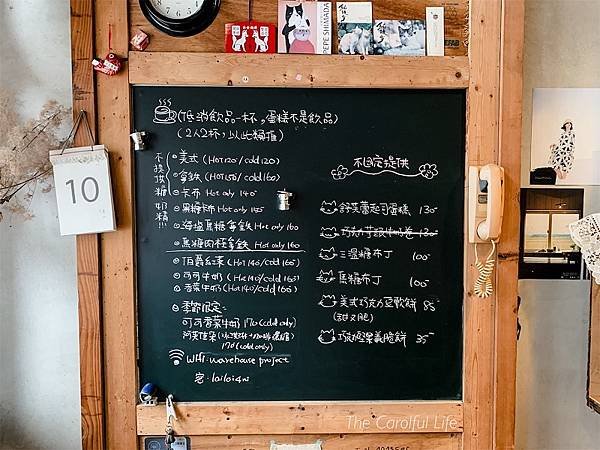 PEPE SHIMADA
10
(低消飲品一杯,蛋糕不是飲品)
(2人2杯,以此類推)
不提供糖、奶精!!!
美式 (Hot120/cold120)
拿鐵 (Hot150/cold160)
卡布 Hot only 140
黑糖卡布 Hot only 155
海鹽焦糖拿鐵 Hot only 160
焦糖肉桂拿鐵 Hot only 160
伯爵紅茶 (Hot140/cold160)
可可牛奶 (Hot140/cold160)
香蕉牛奶 (Hot140/cold160)
季節限定:
可可香蕉牛奶 170 (cold only)
170 (cold only)
wifi: warehouse project
密: loiloi4w
不固定提供
舒芙蕾起司蛋糕 130
巧力芋頭牛奶卷 130
三溫糖布丁 100
焦糖布丁 100
美式巧克力豆軟餅 95
(甜又脆)
巧克堅果義脆餅 35
The Carolful Life